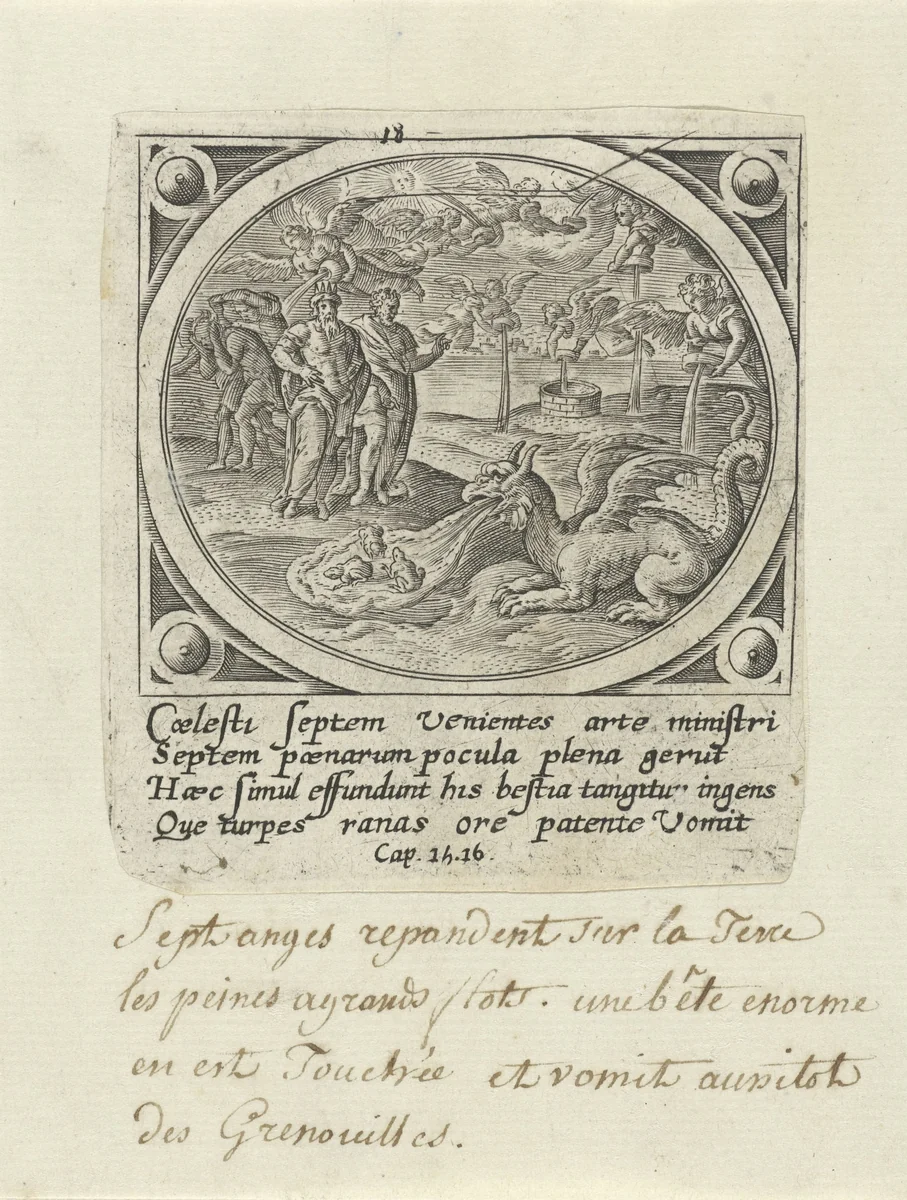 18
Cœlesti septem venientes arte ministri
Septem pœnarum pocula plena gerūt
Hæc simul effundunt his bestia tangitur ingens
Que turpes ranas ore patente vomit
Cap. 15.16.
Sept anges repandent sur la Terre
les peines a grands flots. une bête enorme
en est Touchée et vomit aussitot
des Grenouilles.